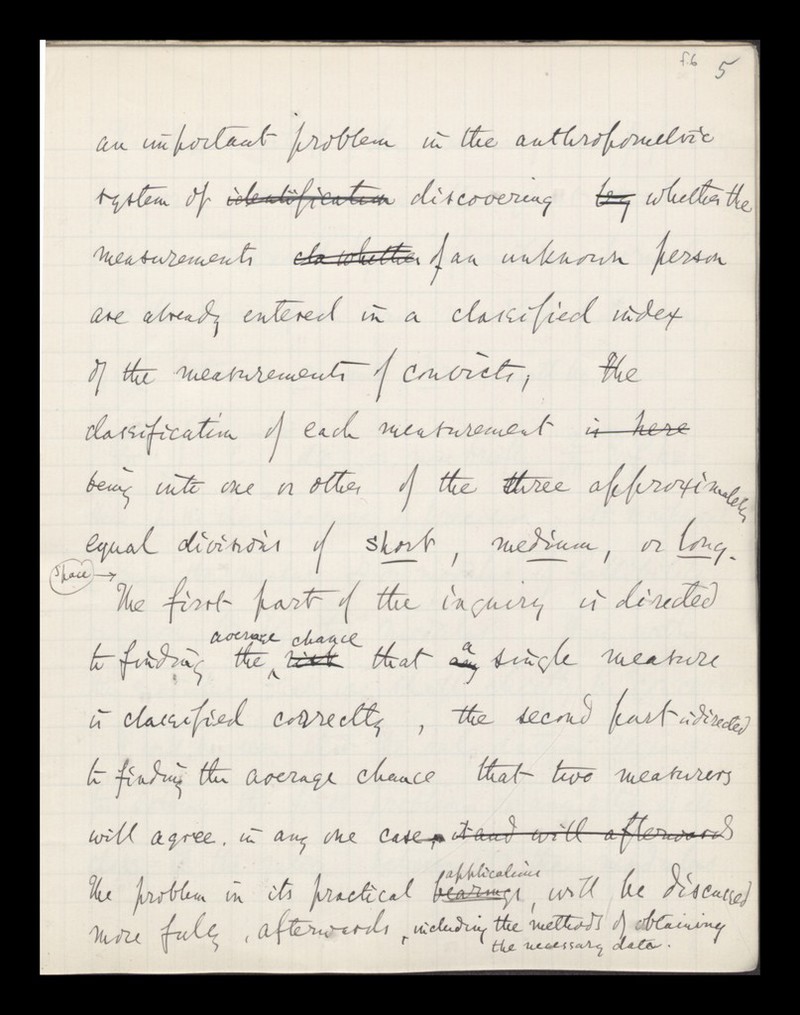 f.6 5
an important problem in the anthropometric
system of identification discovering by whether the
measurements cla whether of an unknown person
are already entered in a classified index
of the measurements of convicts, The
classification of each measurement is here
being into one or other of the three approximately
equal divisions of short, medium, or long.
Space →
The first part of the inquiry is directed
average chance a
to finding the risk that any single measure
is classified correctly, the second part is directed
to finding the average chance that two measurers
will agree. in any one case, it and will afterwards
applications
The problem in its practical bearings, will be discussed
more fully, afterwards, including the methods of obtaining
the necessary data.